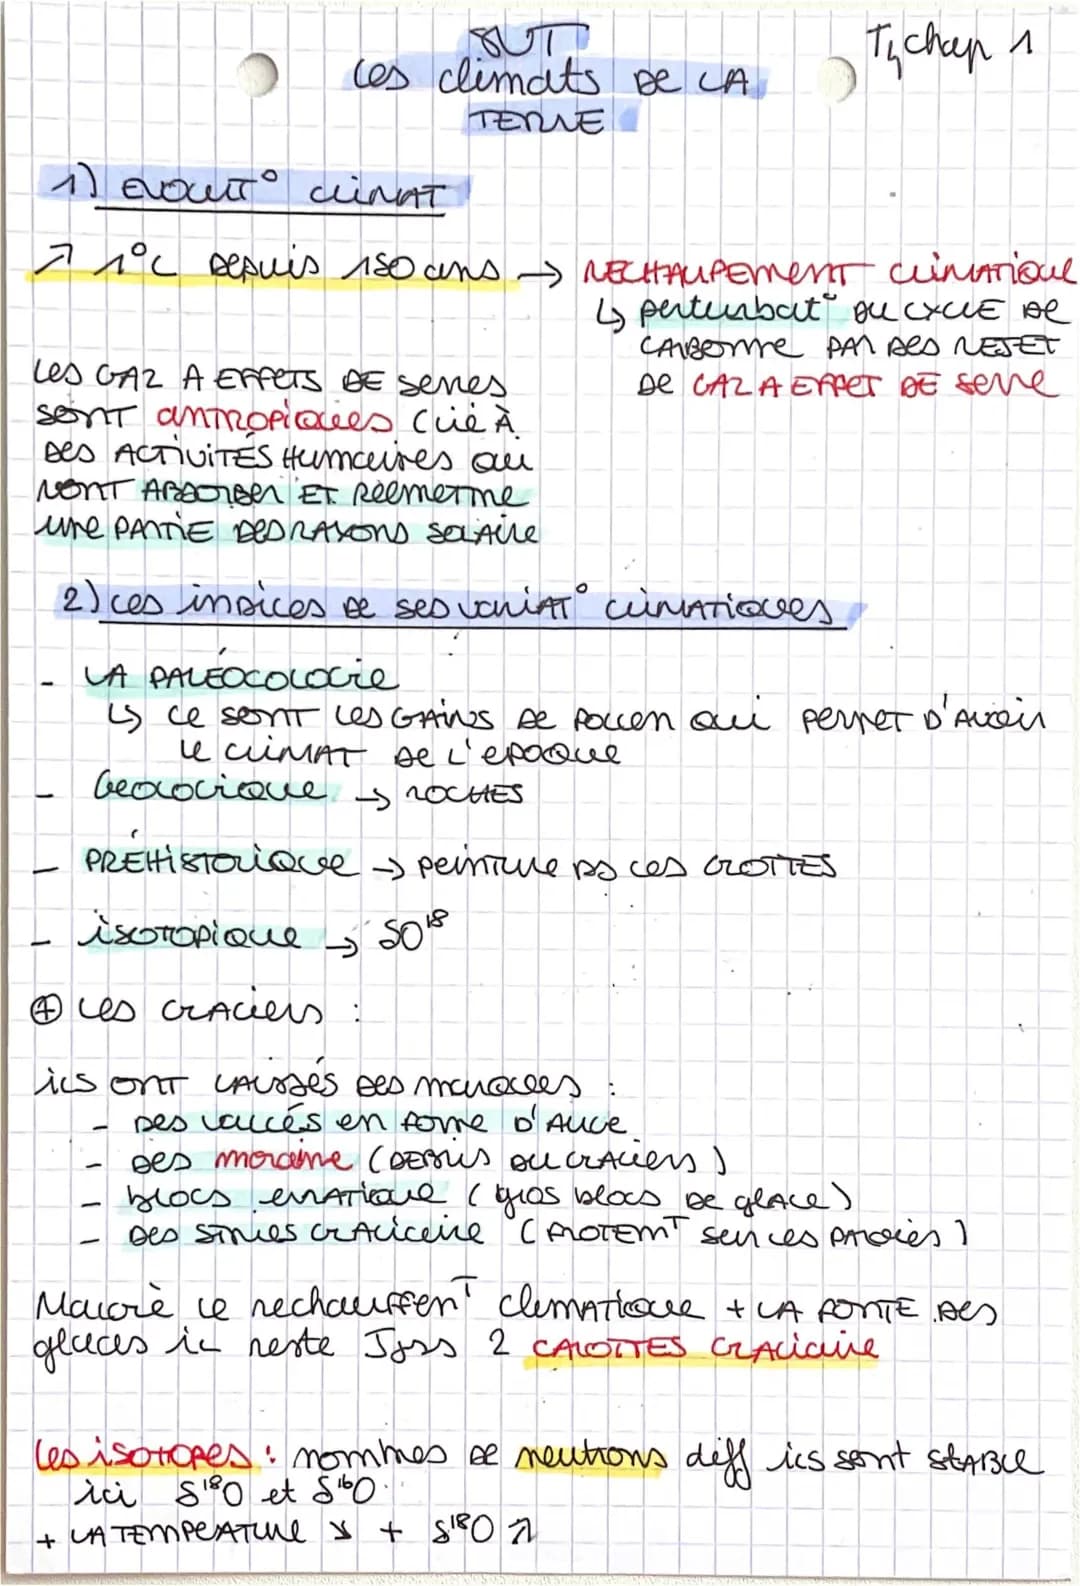 SVT
T4 chap 1
les climats DE LA
TERRE
1) EVOLUT° CLIMAT
↗ 1°C DEPUIS 150 ans → RECHAUFEMENT CLIMATIQUE
↳ perturbat° DU CYCLE DE
CARBONNE PAR DES REJET
DE GAZ A EFFET DE serre
Les GAZ A EFFETS DE serres
SONT antropiques (lié À
DES ACTIVITÉS Humaines qui
VONT ABSORBER ET Réemettre
une PARTIE DES RAYONS SOLAIRE
2) les indices de ses variAT° CLIMATIQUES
- LA PALÉOCOLOGIE
↳ ce SONT les GAINS DE POLLEN qui PERMET D'AVOIR
le CLIMAT DE L'EPOQUE
- Geologique → ROCHES
- PRÉHISTORIQUE → PEINTURE DS les GROTTES
- isotopique → δO18
⊕ les GLACIERS :
ils ONT LAISSÉS DES marques :
- DES vallés en forme D'AUGE
- DES moraine (DEBRIS DU GLACIERS)
- blocs erratique (gros blocs DE glace)
- DES STRIES GLACIAIRE (FROTEMT sur les PAROIES)
Malgré le rechauffenT climatique + LA FONTE DES
glaces il reste Tjrs 2 CALOTTES GLACIAIRE
Les isotopes : nombres DE neutrons diff ils sont STABLE
ici δ18O et δ16O.
+ LA TEMPEATURE ↘ + δ18O ↗